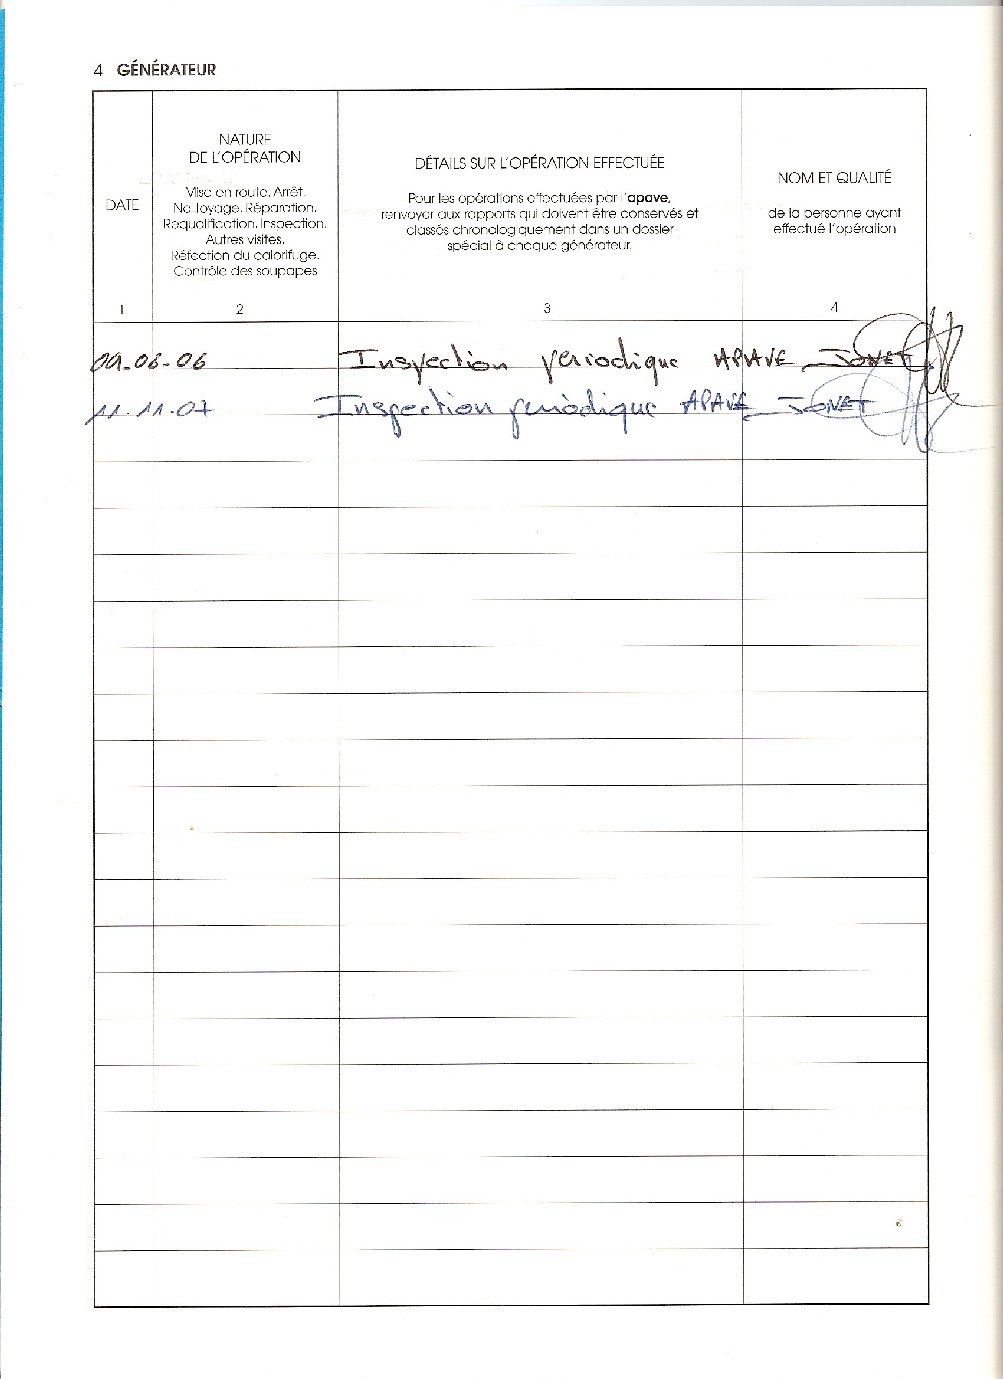 4 GÉNÉRATEUR
DATE
1
NATURE
DE L'OPÉRATION
Mise en route. Arrêt.
Nettoyage. Réparation.
Requalification. Inspection.
Autres visites.
Réfection du calorifuge.
Contrôle des soupapes
2
DÉTAILS SUR L'OPÉRATION EFFECTUÉE
Pour les opérations effectuées par l'apave,
renvoyer aux rapports qui doivent être conservés et
classés chronologiquement dans un dossier
spécial à chaque générateur.
3
NOM ET QUALITÉ
de la personne ayant
effectué l'opération
4
09-06-06 Inspection periodique APAVE JONET
11-11-07 Inspection periodique APAVE JONET